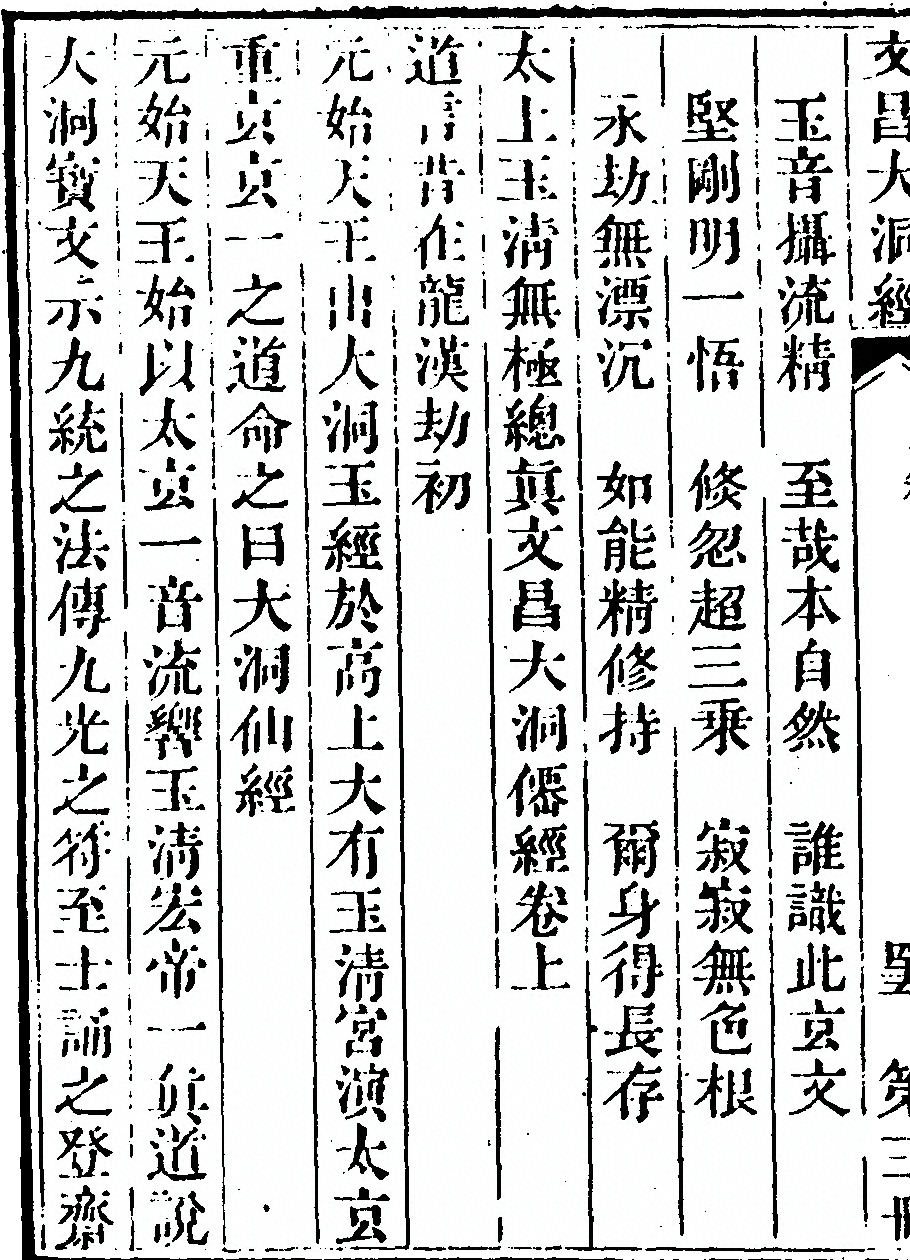 文昌大洞經 第三冊
玉音攝流精 至哉本自然 誰識此玄文
堅剛明一悟 倐忽超三乗 寂寂無色根
永劫無漂沉 如能精修持 爾身得長存
太上玉清無極總眞文昌大洞僊經卷上
道言昔在龍漢劫初
元始天王出大洞玉經於高上大有玉清宮演太玄
重玄玄一之道命之曰大洞仙經
元始天王始以太玄一音流響玉清宏帝一眞道說
大洞寶文示九統之法傳九光之符至士誦之登齋